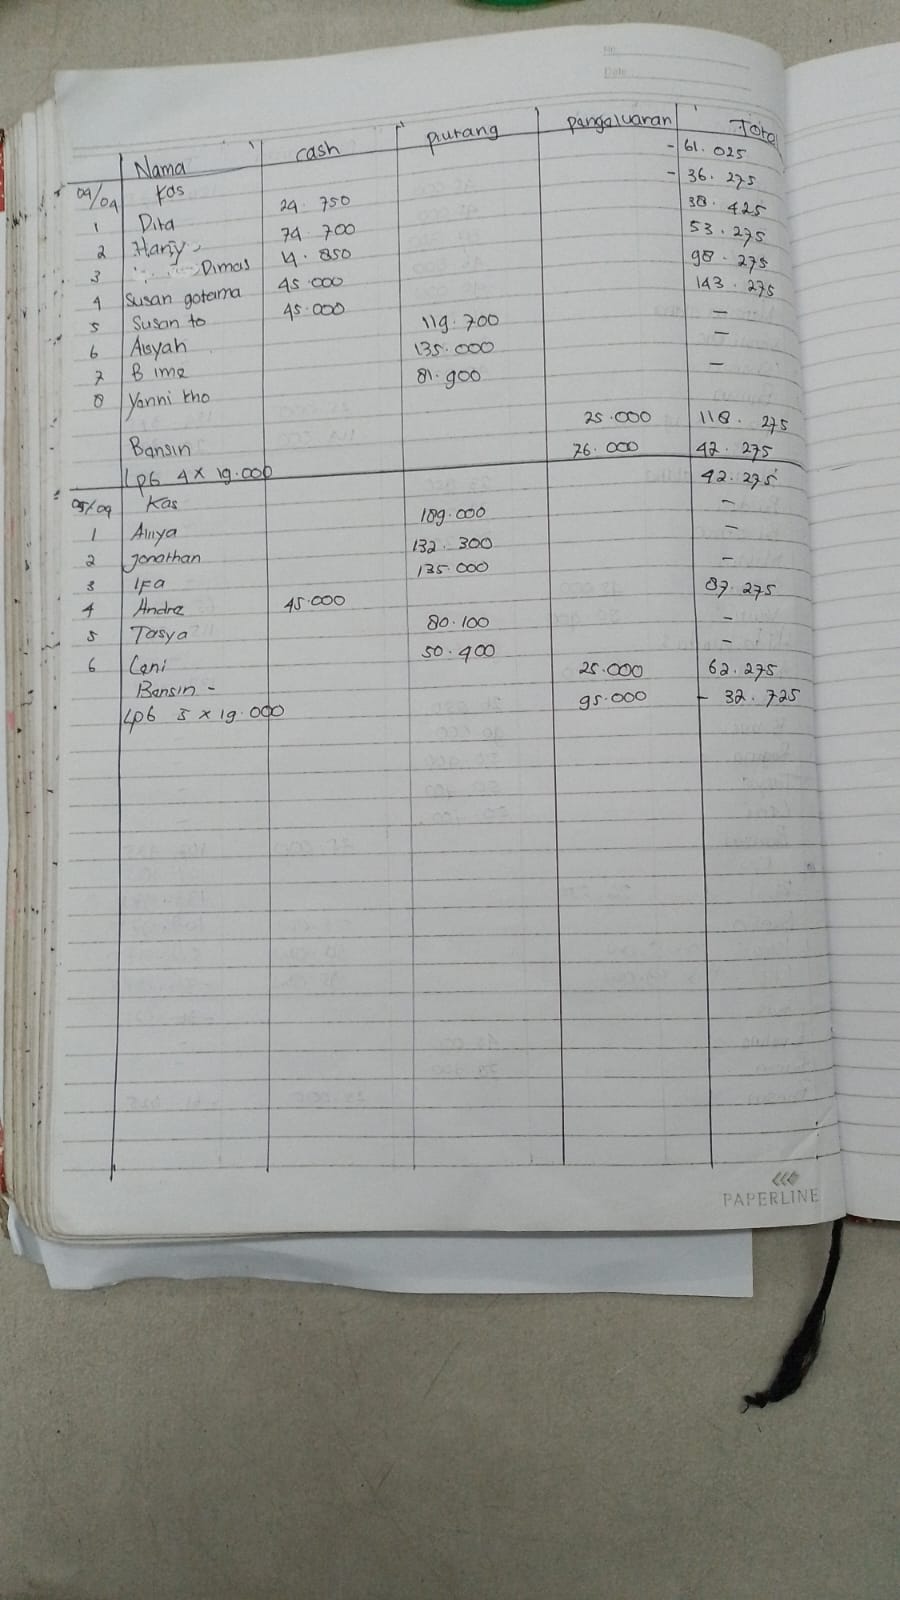 No.
Date
Nama cash piutang pengeluaran Total
04/09 Kas - 61.025
1 Dita 24.750 - 36.275
2 Hanjy 74.700 38.425
3 Dimas 14.850 53.275
4 Susan gotama 45.000 98.275
5 Susan to 45.000 143.275
6 Aisyah 119.700 -
7 B ime 135.000 -
8 Yanni kho 81.900 -
Bensin 25.000 118.275
Lpg 4 x 19.000 76.000 42.275
05/09 Kas 42.275
1 Aliya 189.000 -
2 Jonathan 132.300 -
3 Ifa 135.000 -
4 Andre 45.000 87.275
5 Tasya 80.100 -
6 Leni 50.400 -
Bensin - 25.000 62.275
Lpg 5 x 19.000 95.000 - 32.725
PAPERLINE